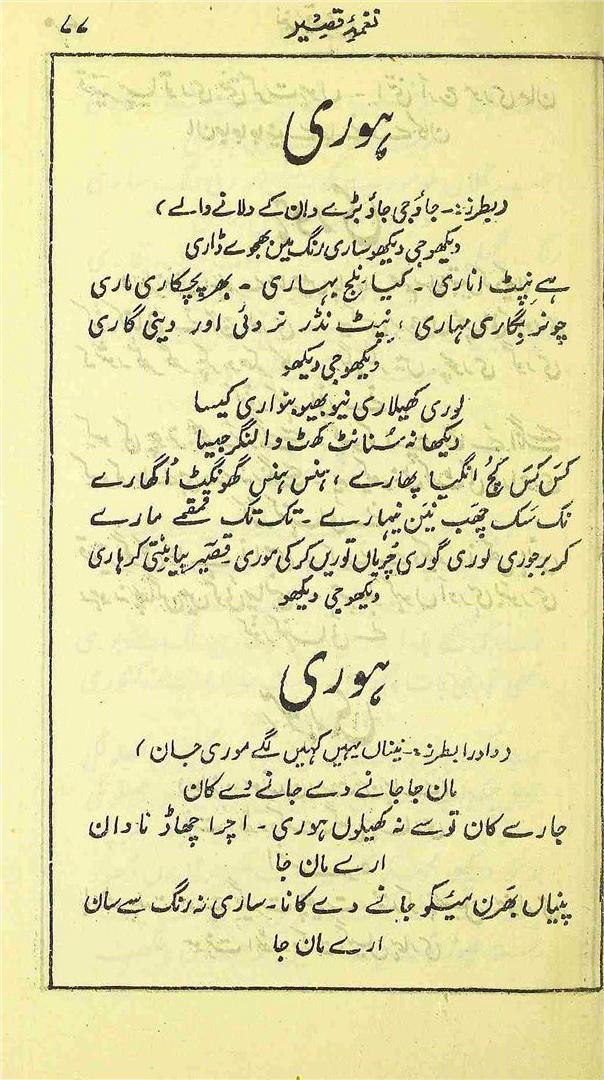 نغمۂ قصیر
۷۷
ہوری
(بطرز:۔ جاؤ جی جاؤ بڑے دان کے دلانے والے)
دیکھو جی دیکھو ساری رنگ مین بھجوے ڈاری
ہے نپٹ اناری ۔ کیا نلج بہاری ۔ بھر پچکاری ماری
چونر بگاری مہاری ، نپٹ نڈر نردئی اور دینی گاری
دیکھو جی دیکھو
لوری کھیلاری نیو بھیو بنواری کیسا
دیکھا نہ سُنا نٹ کھٹ والنگر جیسا
کَس کَس کُچ انگیا پھارے ، ہنس ہنس گھونگیٹ اُگھارے
نک سک چھب نین نیہارے ۔ تک تک قمقمے مارے
کر برجوری لوری گوری چُریاں توریں کرکی موری ۔ قصیر پیا بنتی کر ہاری
دیکھو جی دیکھو
ہوری
(دادرا بطرز:۔ نیناں یہیں کہیں لگے موری جان)
مان جا جانے دے جانے دے کان
جارے کان توسے نہ کھیلوں ہوری ۔ اچرا چھاڑ نادان
ارے مان جا
پنیاں بھرن میٔکو جانے دے کانا ۔ ساری نہ رنگ سے سان
ارے مان جا